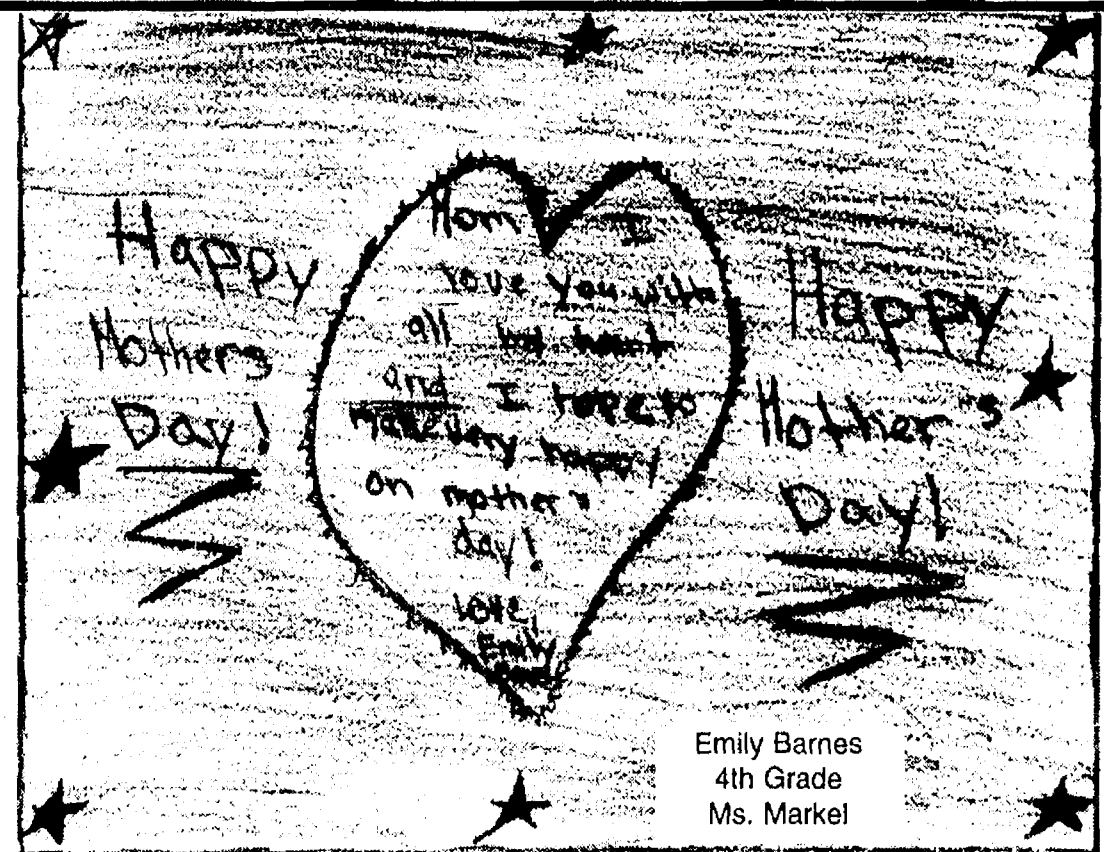 Happy
Mothers
Day!
Mom I
love you with
all my heart
and I hope to
make very happy
on mother's
day!
Love,
Emily
Happy
Mother's
Day!
Emily Barnes
4th Grade
Ms. Markel